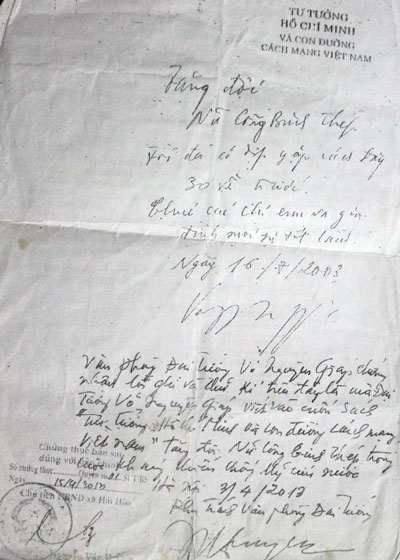 TƯ TƯỞNG
HỒ CHÍ MINH
VÀ CON ĐƯỜNG
CÁCH MẠNG VIỆT NAM
Tặng đội
Nữ Công Binh Thép
Tôi đã có dịp gặp cách đây
30 về trước.
Chúc các chị em và gia
đình mọi sự tốt lành.
Ngày 16/7/2003
Văn phòng Đại tướng Võ Nguyên Giáp chứng
nhận lời ghi và chữ kí trên đây là của Đại
tướng Võ Nguyên Giáp viết vào cuốn sách
"Tư tưởng Hồ Chí Minh và con đường cách mạng
Việt Nam" tặng đội Nữ Công Binh Thép trong
cuộc kháng chiến chống Mỹ cứu nước
Hà Nội 3/4/2013
Phụ trách Văn phòng Đại tướng
Chứng thực bản sao
đúng với
Số chứng thực
Quyển số SCT/TS
Ngày 15/4/2013
Chủ tịch UBND xã Hải Hòa
Nguyễn Văn